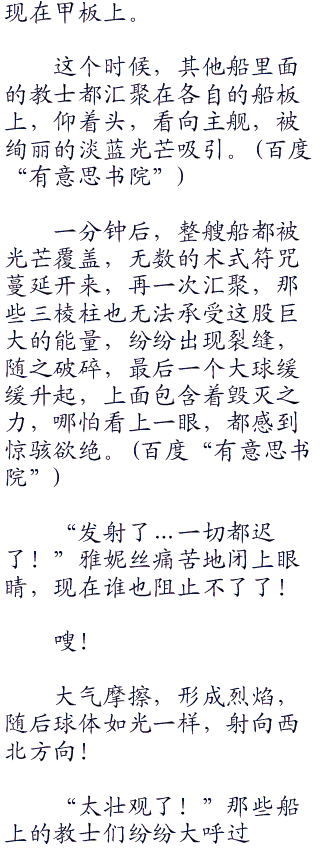 现在甲板上。
这个时候，其他船里面
的教士都汇聚在各自的船板
上，仰着头，看向主舰，被
绚丽的淡蓝光芒吸引。(百度
“有意思书院”)
一分钟后，整艘船都被
光芒覆盖，无数的术式符咒
蔓延开来，再一次汇聚，那
些三棱柱也无法承受这股巨
大的能量，纷纷出现裂缝，
随之破碎，最后一个大球缓
缓升起，上面包含着毁灭之
力，哪怕看上一眼，都感到
惊骇欲绝。(百度“有意思书
院”)
“发射了…一切都迟
了！”雅妮丝痛苦地闭上眼
睛，现在谁也阻止不了了！
嗖！
大气摩擦，形成烈焰，
随后球体如光一样，射向西
北方向！
“太壮观了！”那些船
上的教士们纷纷大呼过